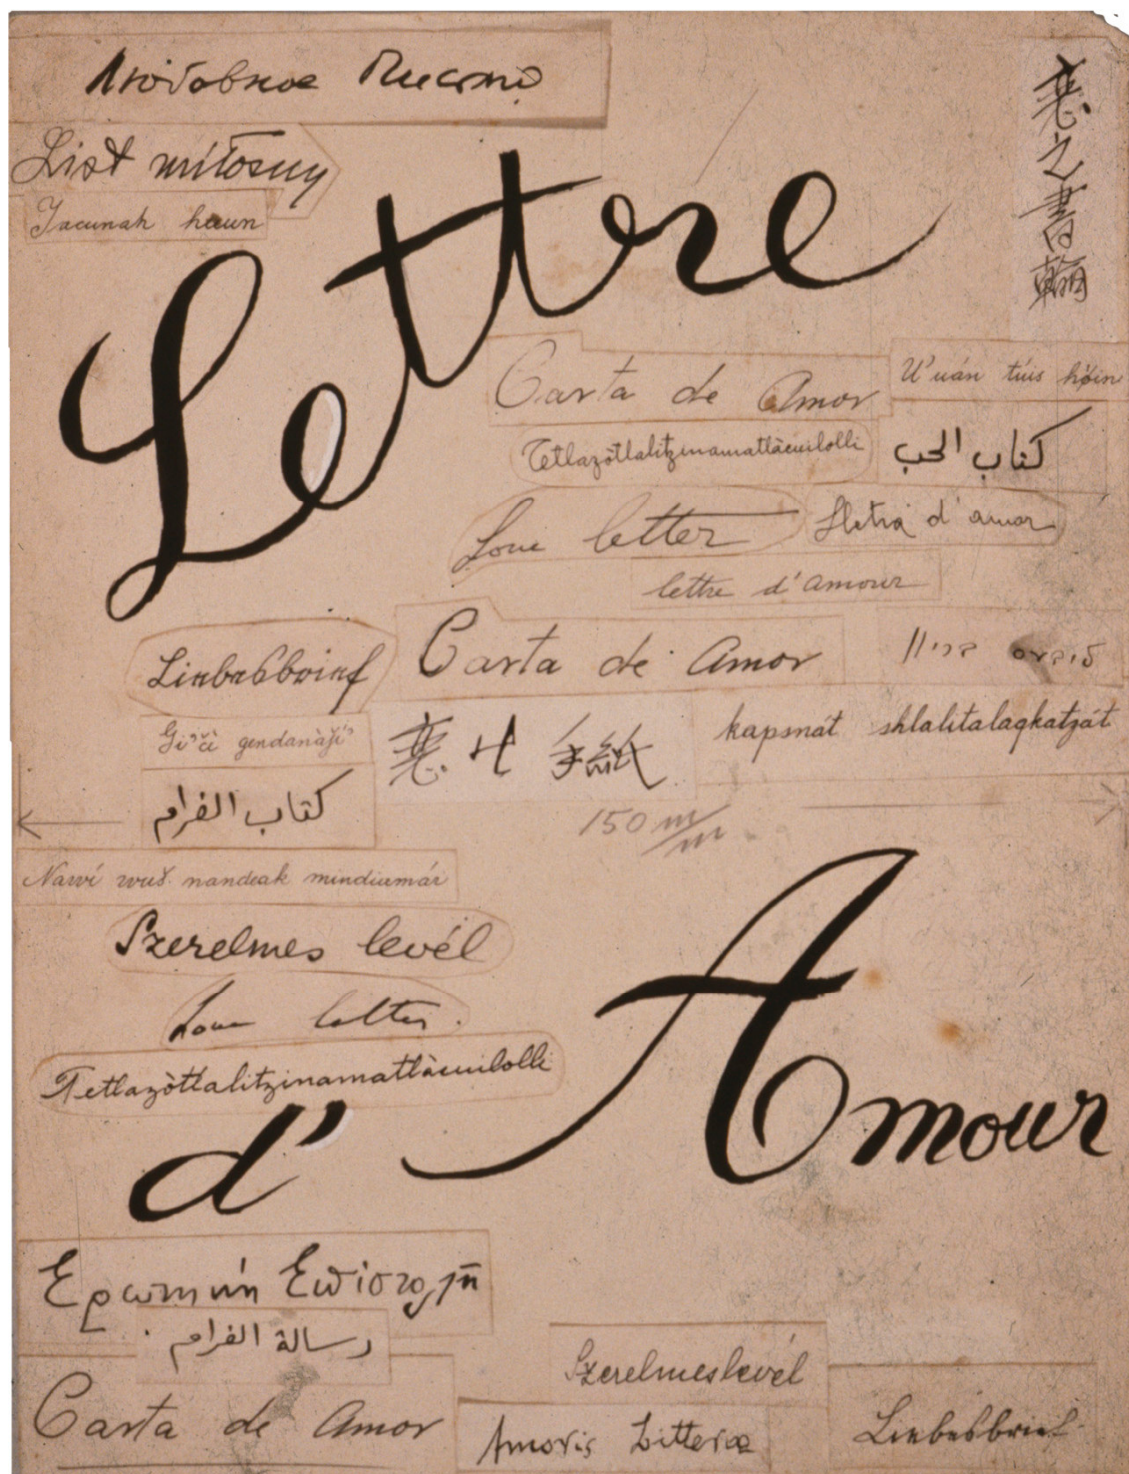 Любовное Письмо
List miłosny
Jacunah haun
恋之書翰
Lettre
Carta de Amor
U'uán tíus hóin
Tetlazòtlalitzinamatlàcuilolli
كتاب الحب
Love letter
Lletra d'amor
lettre d'amour
Liebesbrief
Carta de Amor
ליבעס
Gi'čì gendanàží'
恋ノ手紙
kapsnát shlalitalaqkatzát
كتاب الغرام
150 m/m
Nawí wuš nandeak mindiumár
Szerelmes levél
Love letter.
Tetlazòtlalitzinamatlàcuilolli
d'Amour
Ερωτική Επιστολή
رسالة الغرام
Szerelmeslevél
Carta de Amor
Amoris Litteræ
Liebesbrief